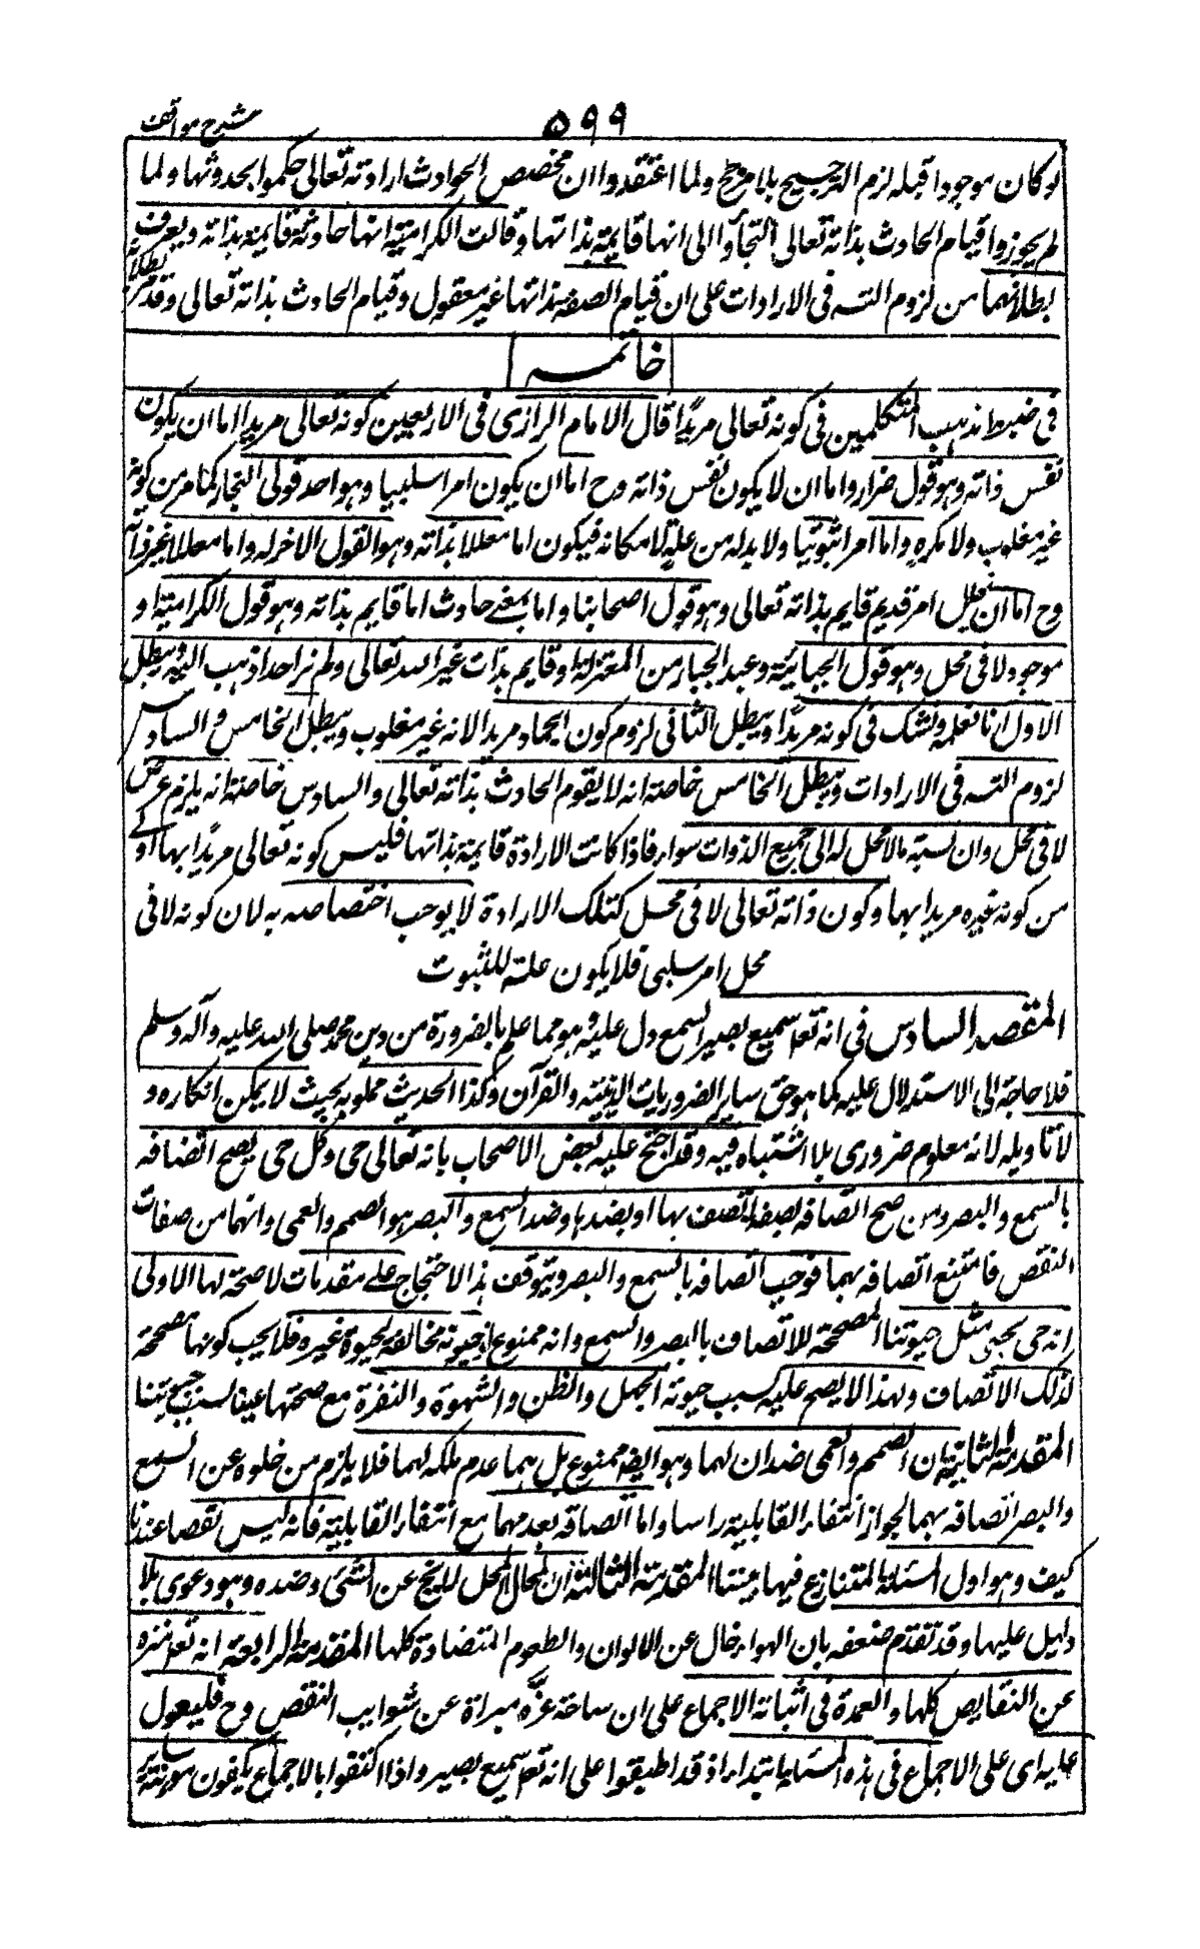 شرح مواقف
۵۹۹
لو كان موجودا قبله لزم الترجيح بلا مرجح ولما اعتقدوا ان مخصص الحوادث ارادته تعالى حكموا بحدوثها ولما
لم يجوزوا قيام الحادث بذاته تعالى التجأوا الى انها قايمة بذاتها وقالت الكرامية انها حادثة قايمة بذاته ويعرف
بطلانهما من لزوم التسـ فى الارادات على ان قيام الصفة بذاتها غير معقول وقيام الحادث بذاته تعالى وقد مر
بطلانه
خاتمـــه
فى ضبط مذهب المتكلمين فى كونه تعالى مريدًا قال الامام الرازى فى الاربعين كونه تعالى مريدا اما ان يكون
نفس ذاته وهو قول ضرار واما ان لا يكون نفس ذاته وح اما ان يكون امرا سلبيا وهو احد قولى النجار كما مر من كونه
غير مغلوب ولا مكره واما امرا ثبوتيا ولا بد له من علة لامكانه فيكون اما معللا بذاته وهو القول الاخر له واما معللا بغير ذاته
وح اما ان يعلل امر قديم قايم بذاته تعالى وهو قول اصحابنا واما بمعنے حادث اما قايم بذاته وهو قول الكرامية او
موجود لا فى محل وهو قول الجبائية وعبد الجبار من المعتزلة او قايم بذات غير الله تعالى ولم نر احدا ذهب اليه ويبطل
الاول انا نعلمه ونشك فى كونه مريدًا ويبطل الثانى لزوم كون الجماد مريدا لانه غير مغلوب ويبطل الخامس والسادس
لزوم التسـ فى الارادات ويبطل الخامس خاصة انه لا يقوم الحادث بذاته تعالى والسادس خاصة انه يلزم عرض
لا فى محل وان نسبة ما لا محل له الى جميع الذوات سواء فاذا كانت الارادة قايمة بذاتها فليس كونه تعالى مريدًا بها اولے
من كونه غيره مريدا بها وكون ذاته تعالى لا فى محل كتلك الارادة لا يوجب اختصاصه به لان كونه لا فى
محل امر سلبى فلا يكون علة للثبوت
المقصد السادس فى انه تعا سميع بصير السمع دل عليه وهو مما علم بالضرورة من دين محمد صلى الله عليه وآله وسلم
فلا حاجة الى الاستدلال عليه كما هو حق ساير الضروريات الدينية والقرآن وكذا الحديث مملو به بحيث لا يمكن انكاره و
لا تاويله لانه معلوم ضرورى بلا اشتباه فيه وقد احتج عليه بعض الاصحاب بانه تعالى حى وكل حى يصح اتصافه
بالسمع والبصر ومن صح اتصافه بصفة اتصف بها او بضدها وضد السمع والبصر هو الصمم والعمى وانهما من صفات
النقص فامتنع اتصافه بهما فوجب اتصافه بالسمع والبصر ويتوقف هذا الاحتجاج علے مقدمات لا صحة لها الاولى
انه حى بحيوة مثل حيوتنا المصححة للاتصاف باالبصر والسمع وانه ممنوع اذ حيوته مخالفة لحيوة غيره فلا يجب كونها مصححة
لذلك الاتصاف ولهذا لا يصح عليه بسبب حيوته الجهل والظن والشهوة والنفرة مع صحتها عينا بسبب حيوتنا
المقدمة الثانية ان الصمم والعمى ضدان لهما وهو ايضا ممنوع بل هما عدم ملكة لهما فلا يلزم من خلوه عن السمع
والبصر اتصافه بهما لجواز انتفاء القابلية راسا واما اتصافه بعدمهما مع انتفاء القابلية فانه ليس نقصا عندنا
كيف وهو اول المسئلة المتنازع فيها بيننا المقدمة الثالثة ان المحل لا يخ عن الشئ وضده وهو دعوى بلا
دليل عليها وقد تقدم ضعفه بان الهواء خال عن الالوان والطعوم المتضادة كلها المقدمة الرابعة انه تعا منزه
عن النقايص كلها والعمدة فى اثباته الاجماع على ان ساحة عزه مبراة عن شوايب النقص وح فليعول
عليه اى على الاجماع فى هذه المسئلة ابتداء اذ قد اطبقوا على انه تعا سميع بصير واذا اكتفوا بالاجماع يكفون مونة ساير